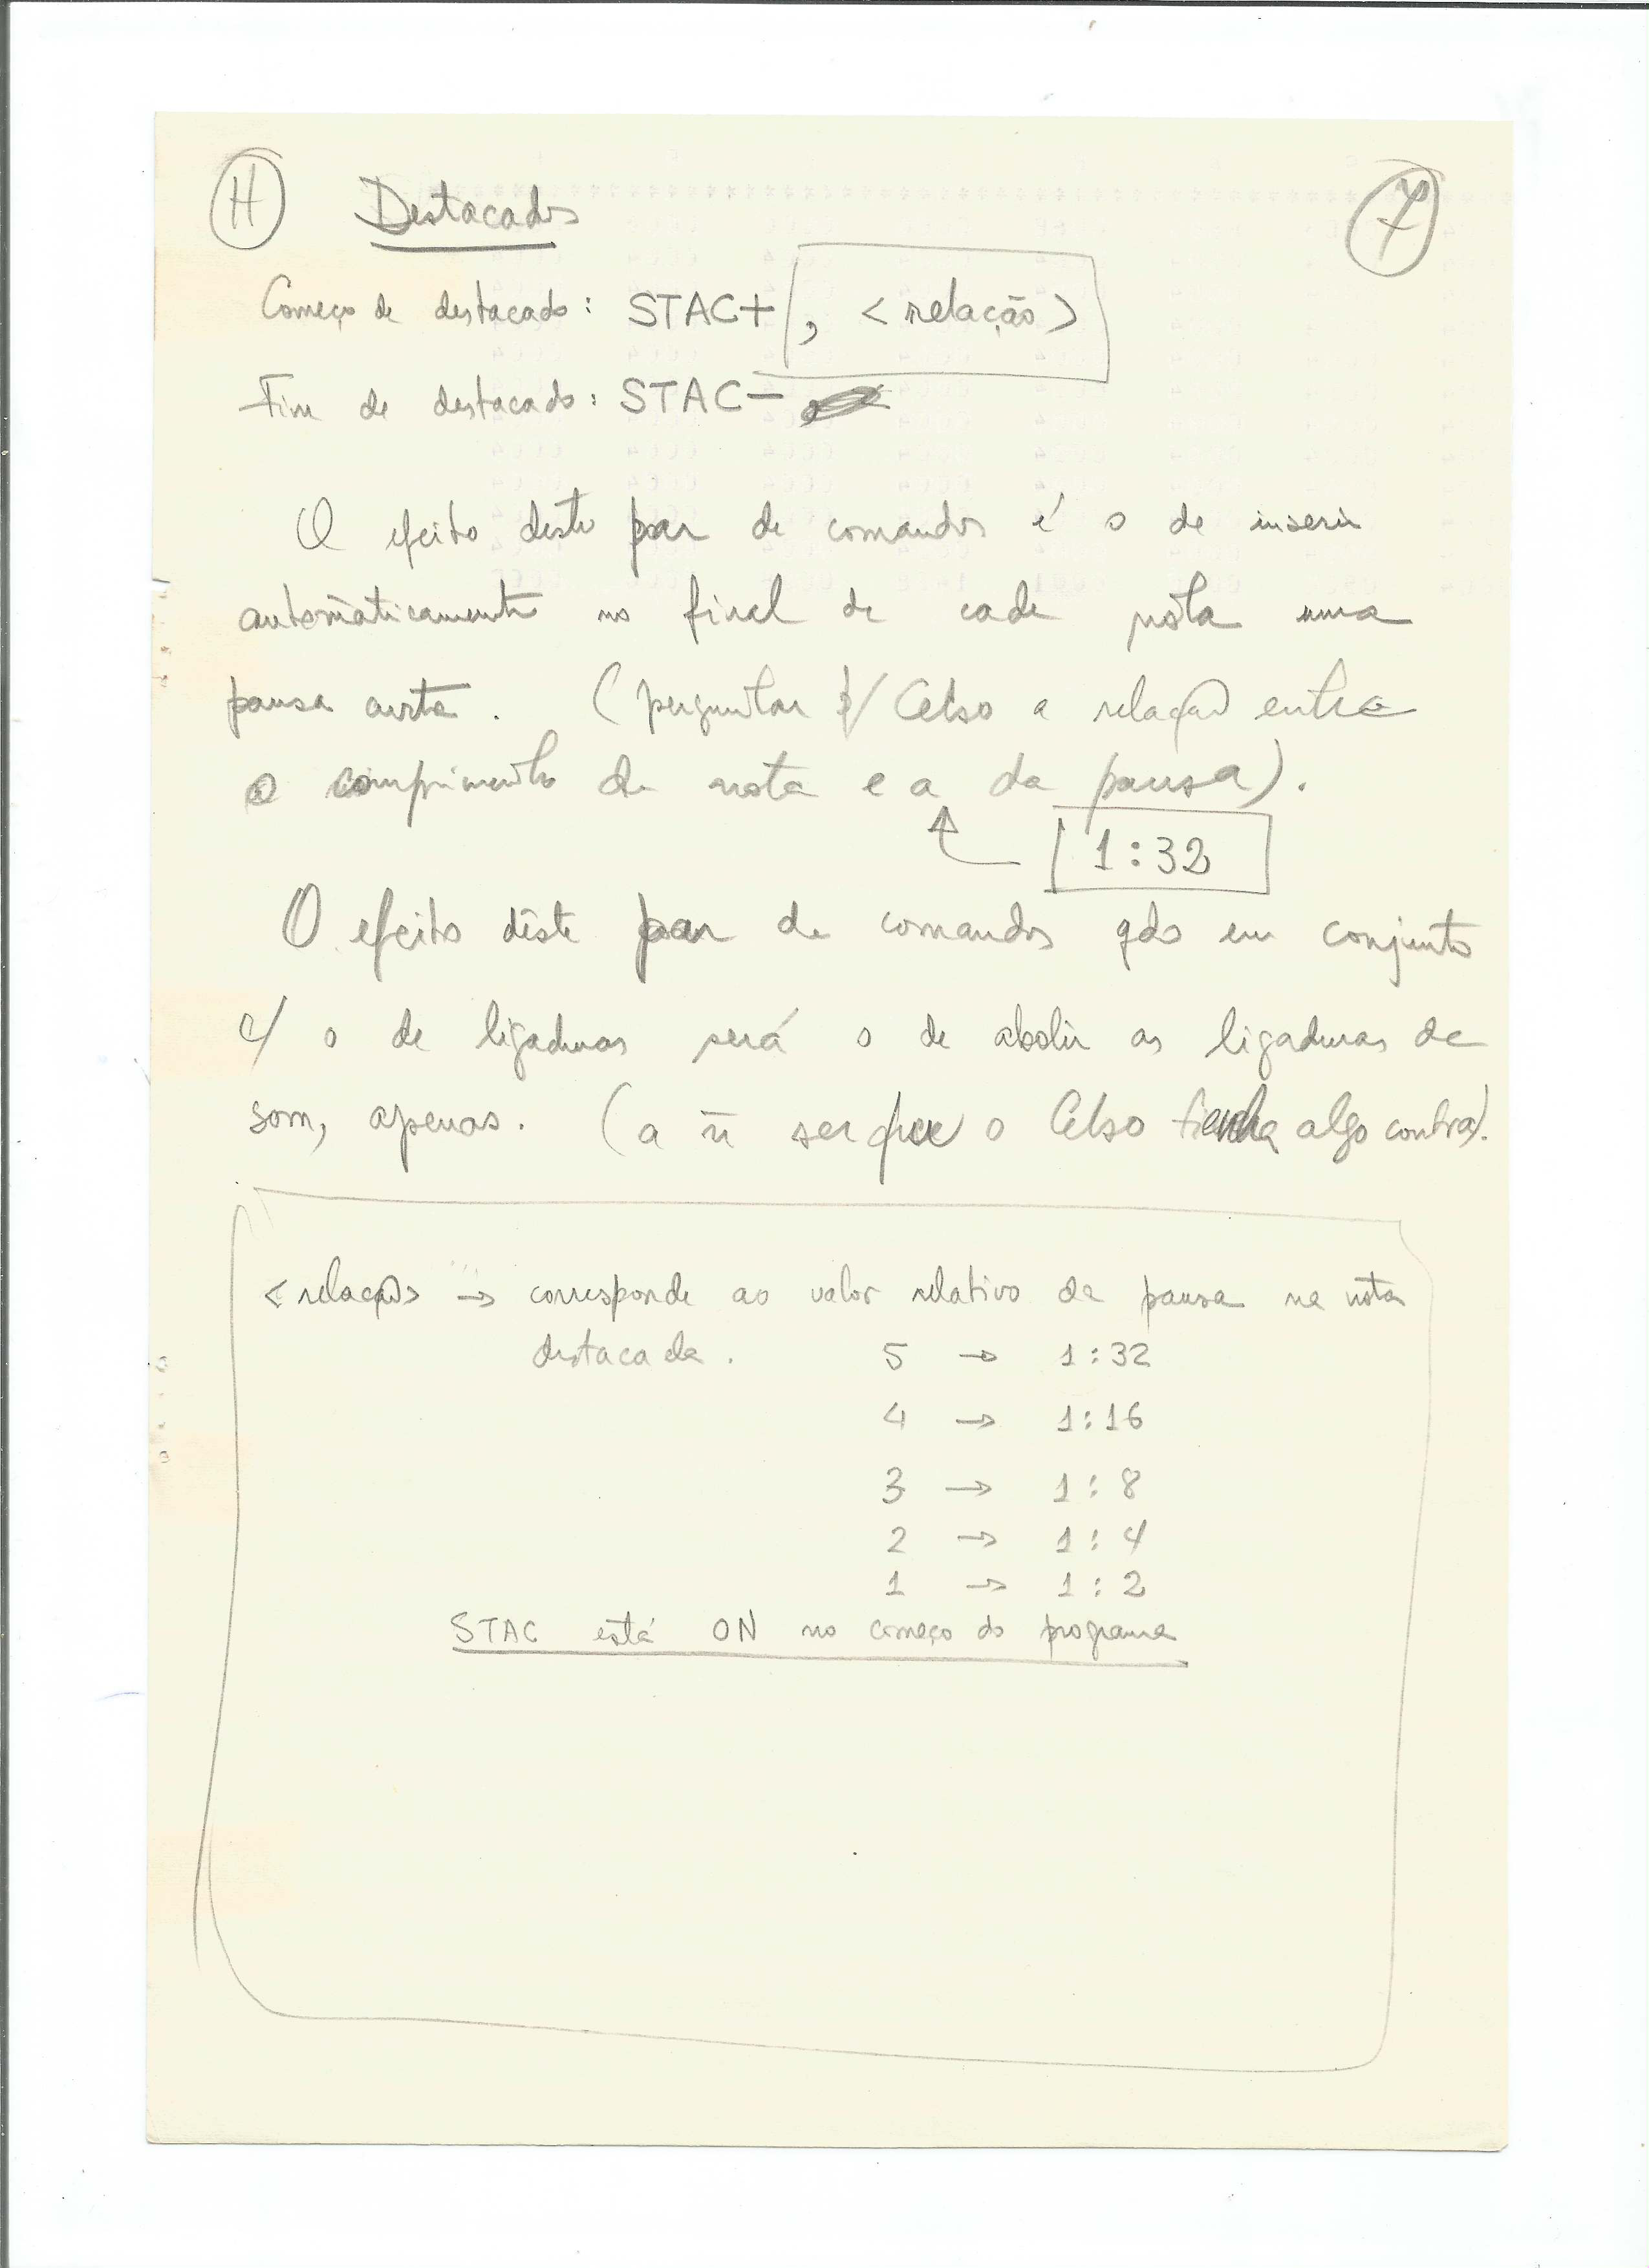 H Destacados 7
Começo de destacado: STAC+ , <relação>
Fim de destacado: STAC-
O efeito deste par de comandos é o de inserir
automàticamente no final de cada nota uma
pausa curta. (perguntar p/ Celso a relação entre
o comprimento da nota e a da pausa).
1:32
O efeito dêste par de comandos qdo em conjunto
c/ o de ligaduras será o de abolir as ligaduras de
som, apenas. (a ñ ser que o Celso tenha algo contra).
<relação> → corresponde ao valor relativo da pausa na nota
destacada. 5 → 1:32
4 → 1:16
3 → 1:8
2 → 1:4
1 → 1:2
STAC está ON no começo do programa